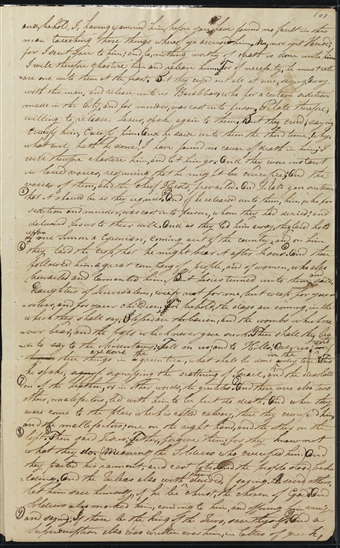 and behold, I, having examined him before you, have found no fault in this
man touching those things whereof ye accuse him; no, nor yet Herod;
for I sent you to him; and lo, nothing worthy of death is done unto him
I will therefore chastise him, and release him. For of necessity, he must rele-
ase one unto them at the feast. But they cried out all at once, saying, Away
with this man, and release unto us Barabbas; who for a certain sedition
made in the City, and for murder, was cast into prison. Pilate therefore,
willing to release Jesus, spoke again to them. But they cried, saying
Crucify him, Crucify him. And he said unto them the third time, Why,
what evil hath he done? I have found no cause of death in him; I
will therefore chastise him, and let him go. And they were instant
in loud voices, requiring that he might be crucified; And the
voices of them, and the Chief Priests, prevailed. And Pilate gave sentence
that it should be as they required. And he released unto them, him, who for
sedition and murder, was cast into prison, whom they had desired; and
delivered Jesus to their will. And as they led him away, they laid hold
upon one Simon a Cyrenian, coming out of the country, and on him
they laid the cross, that he might bear it after Jesus. And there
followed him a great company of people, and of women, who also
bewailed and lamented him. But Jesus turned unto them, and said,
Daughters of Jerusalem, weep not for me, but weep for your-
selves, and for your children. For behold, the days are coming, in the
which they shall say, Blessed are the barren, and the wombs which ne-
ver bare, and the paps which never gave suck. Then shall they beg-
in to say to the Mountains, fall on us; and to Hills, Cover us.
these things are done in the green tree, what shall be done in the dry tree. This
he spake, signifying the scattering of Israel, and the desolati-
on of the heathen, or in other words, the gentiles. And there were also two
others, malefactors, led with him to be put to death. And when they
were come to the place which is called calvary, there they crucified him,
and the malefactors; one on the right hand, and the other on the
left. Then said Jesus, Father, forgive them; for they know not
what they do. Meaning the Soldiers who crucified him. And
they parted his raiment, and cast lots. And the people stood, behol-
ding, And the rulers also with them, derided, saying, He saved others;
let him save himself, if he be Christ, the chosen of God. And
Soldiers also mocked him, coming to him, and offering him vinegar
and saying, If thou be the King of the Jews, save thyself. And a
Superscription also was written over him, in letters of greek,